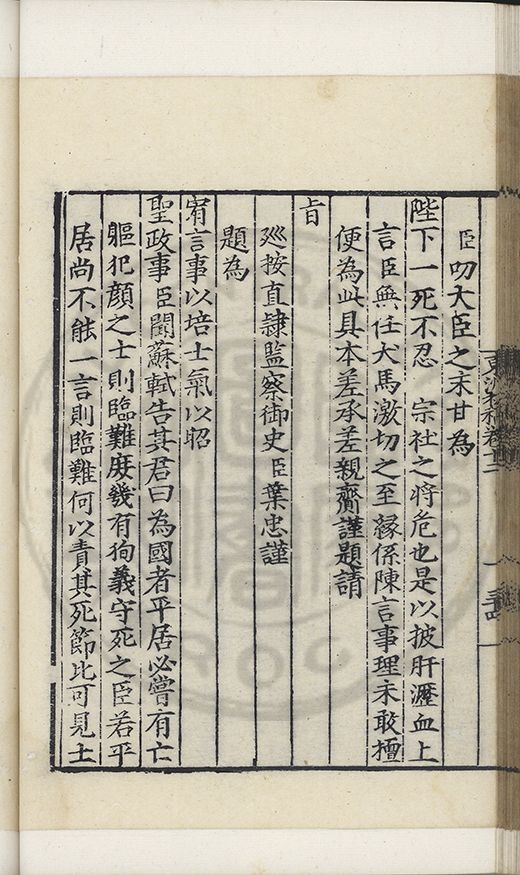 臣叨大臣之末甘為
陛下一死不忍　宗社之將危也是以披肝瀝血上
言臣無任犬馬激切之至緣係陳言事理未敢擅
便為此具本差承差親齎謹題請
旨
廵按直隷監察御史臣葉忠謹
題為
宥言事以培士氣以昭
聖政事臣聞蘇軾告其君曰為國者平居必嘗有亡
軀犯顔之士則臨難庻幾有狥義守死之臣若平
居尚不能一言則臨難何以責其死節比可見士